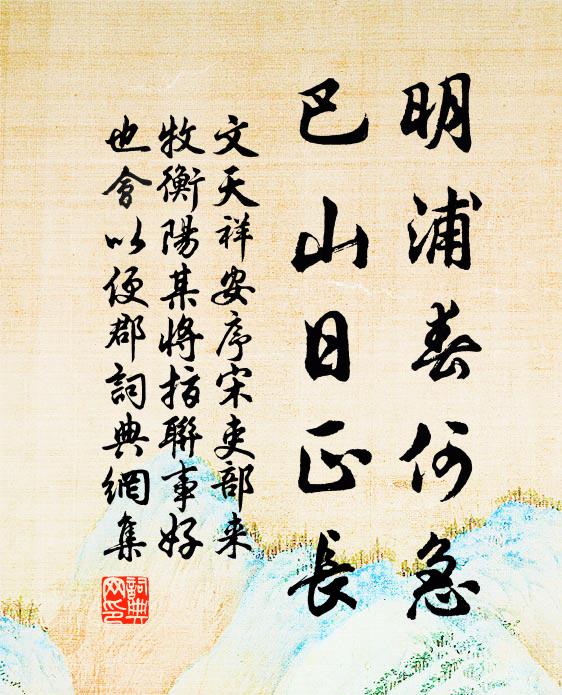 明浦春何急
巴山日正長
文天祥安序宋吏部来
牧衡陽某將指聯事好
也會以便郡詞典網集
詞典